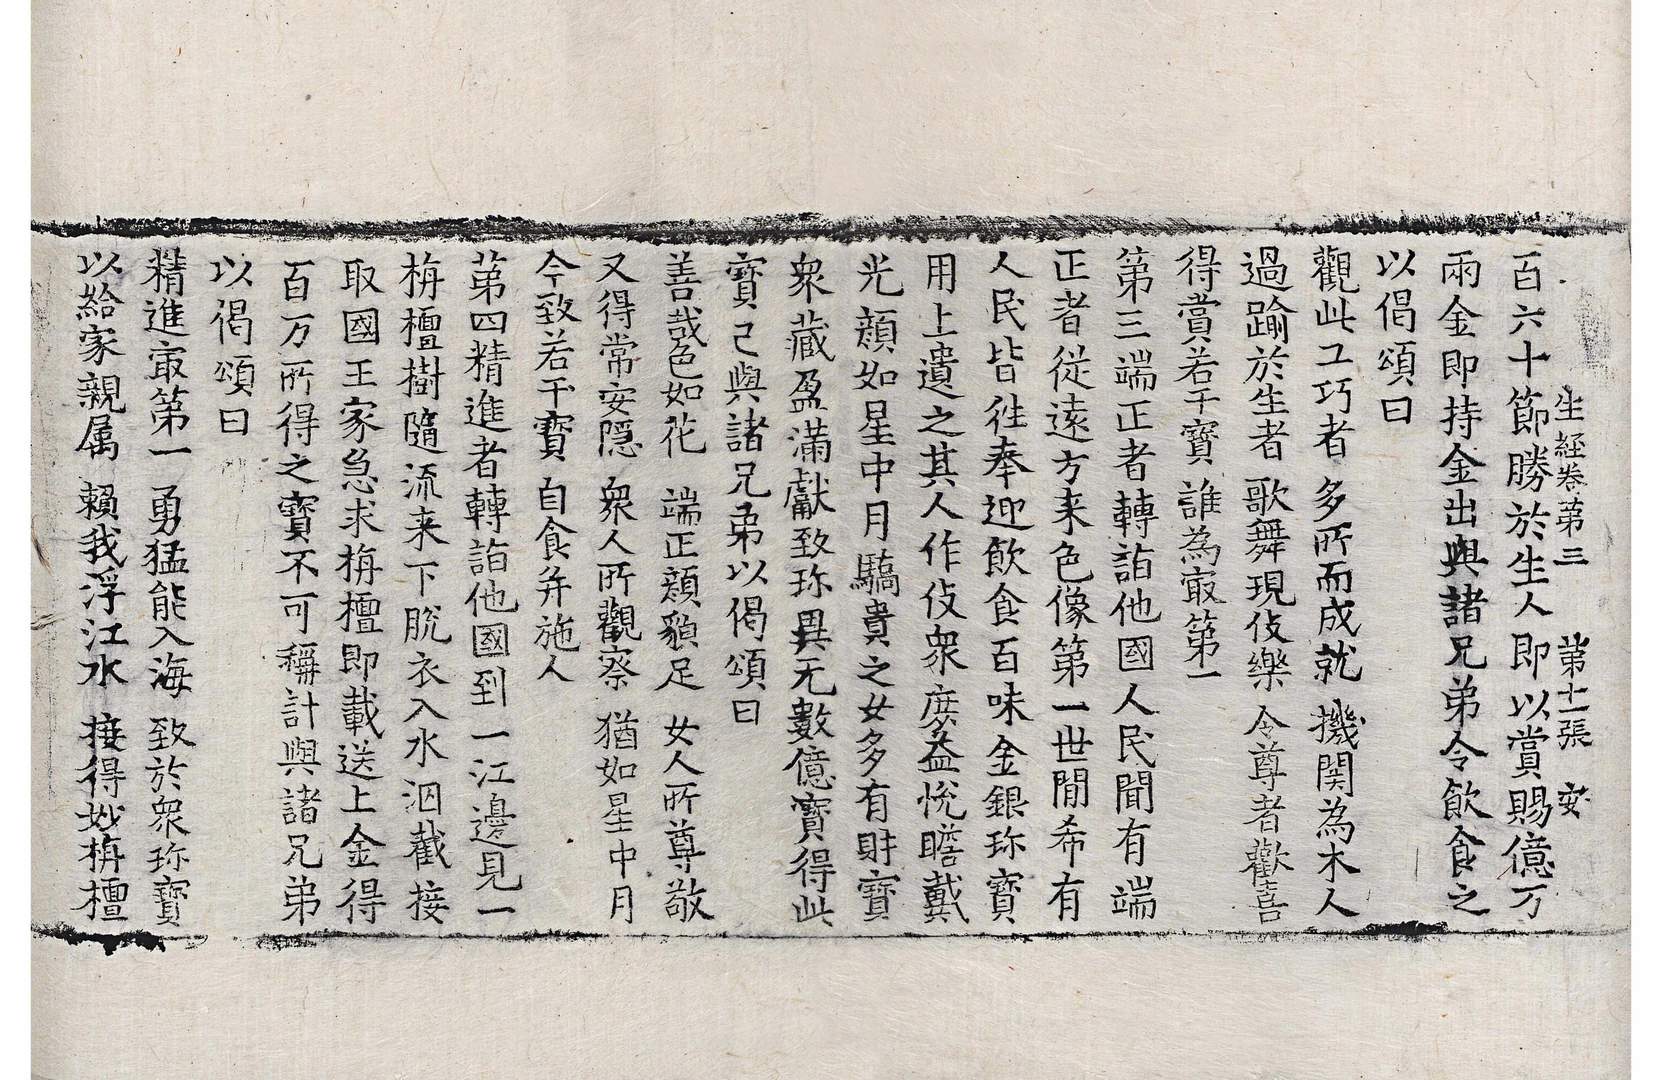 百六十節勝於生人即以賞賜億万
生経卷第三 第十一張 安
兩金即持金出與諸兄弟令飲食之
以偈頌曰
觀此工巧者 多所而成就 機関為木人
過踰於生者 歌舞現伎樂 令尊者歡喜
得賞若干寶 誰為㝡第一
第三端正者轉詣他國人民聞有端
正者從遠方来色像第一世閒希有
人民皆徃奉迎飲食百味金銀珎寶
用上遺之其人作伎衆庶益悅瞻戴
光顏如星中月驕貴之女多有財寶
衆藏盈滿獻致珎異无數億寶得此
寶已與諸兄弟以偈頌曰
善哉色如花 端正顏貌足 女人所尊敬
又得常安隱 衆人所觀察 猶如星中月
今致若干寶 自食并施人
第四精進者轉詣他國到一江邊見一
栴檀樹隨流来下脫衣入水泅截接
取國王家急求栴檀即載送上金得
百万所得之寶不可稱計與諸兄弟
以偈頌曰
精進㝡第一 勇猛能入海 致於衆珎寶
以給家親属 賴我浮江水 接得妙栴檀